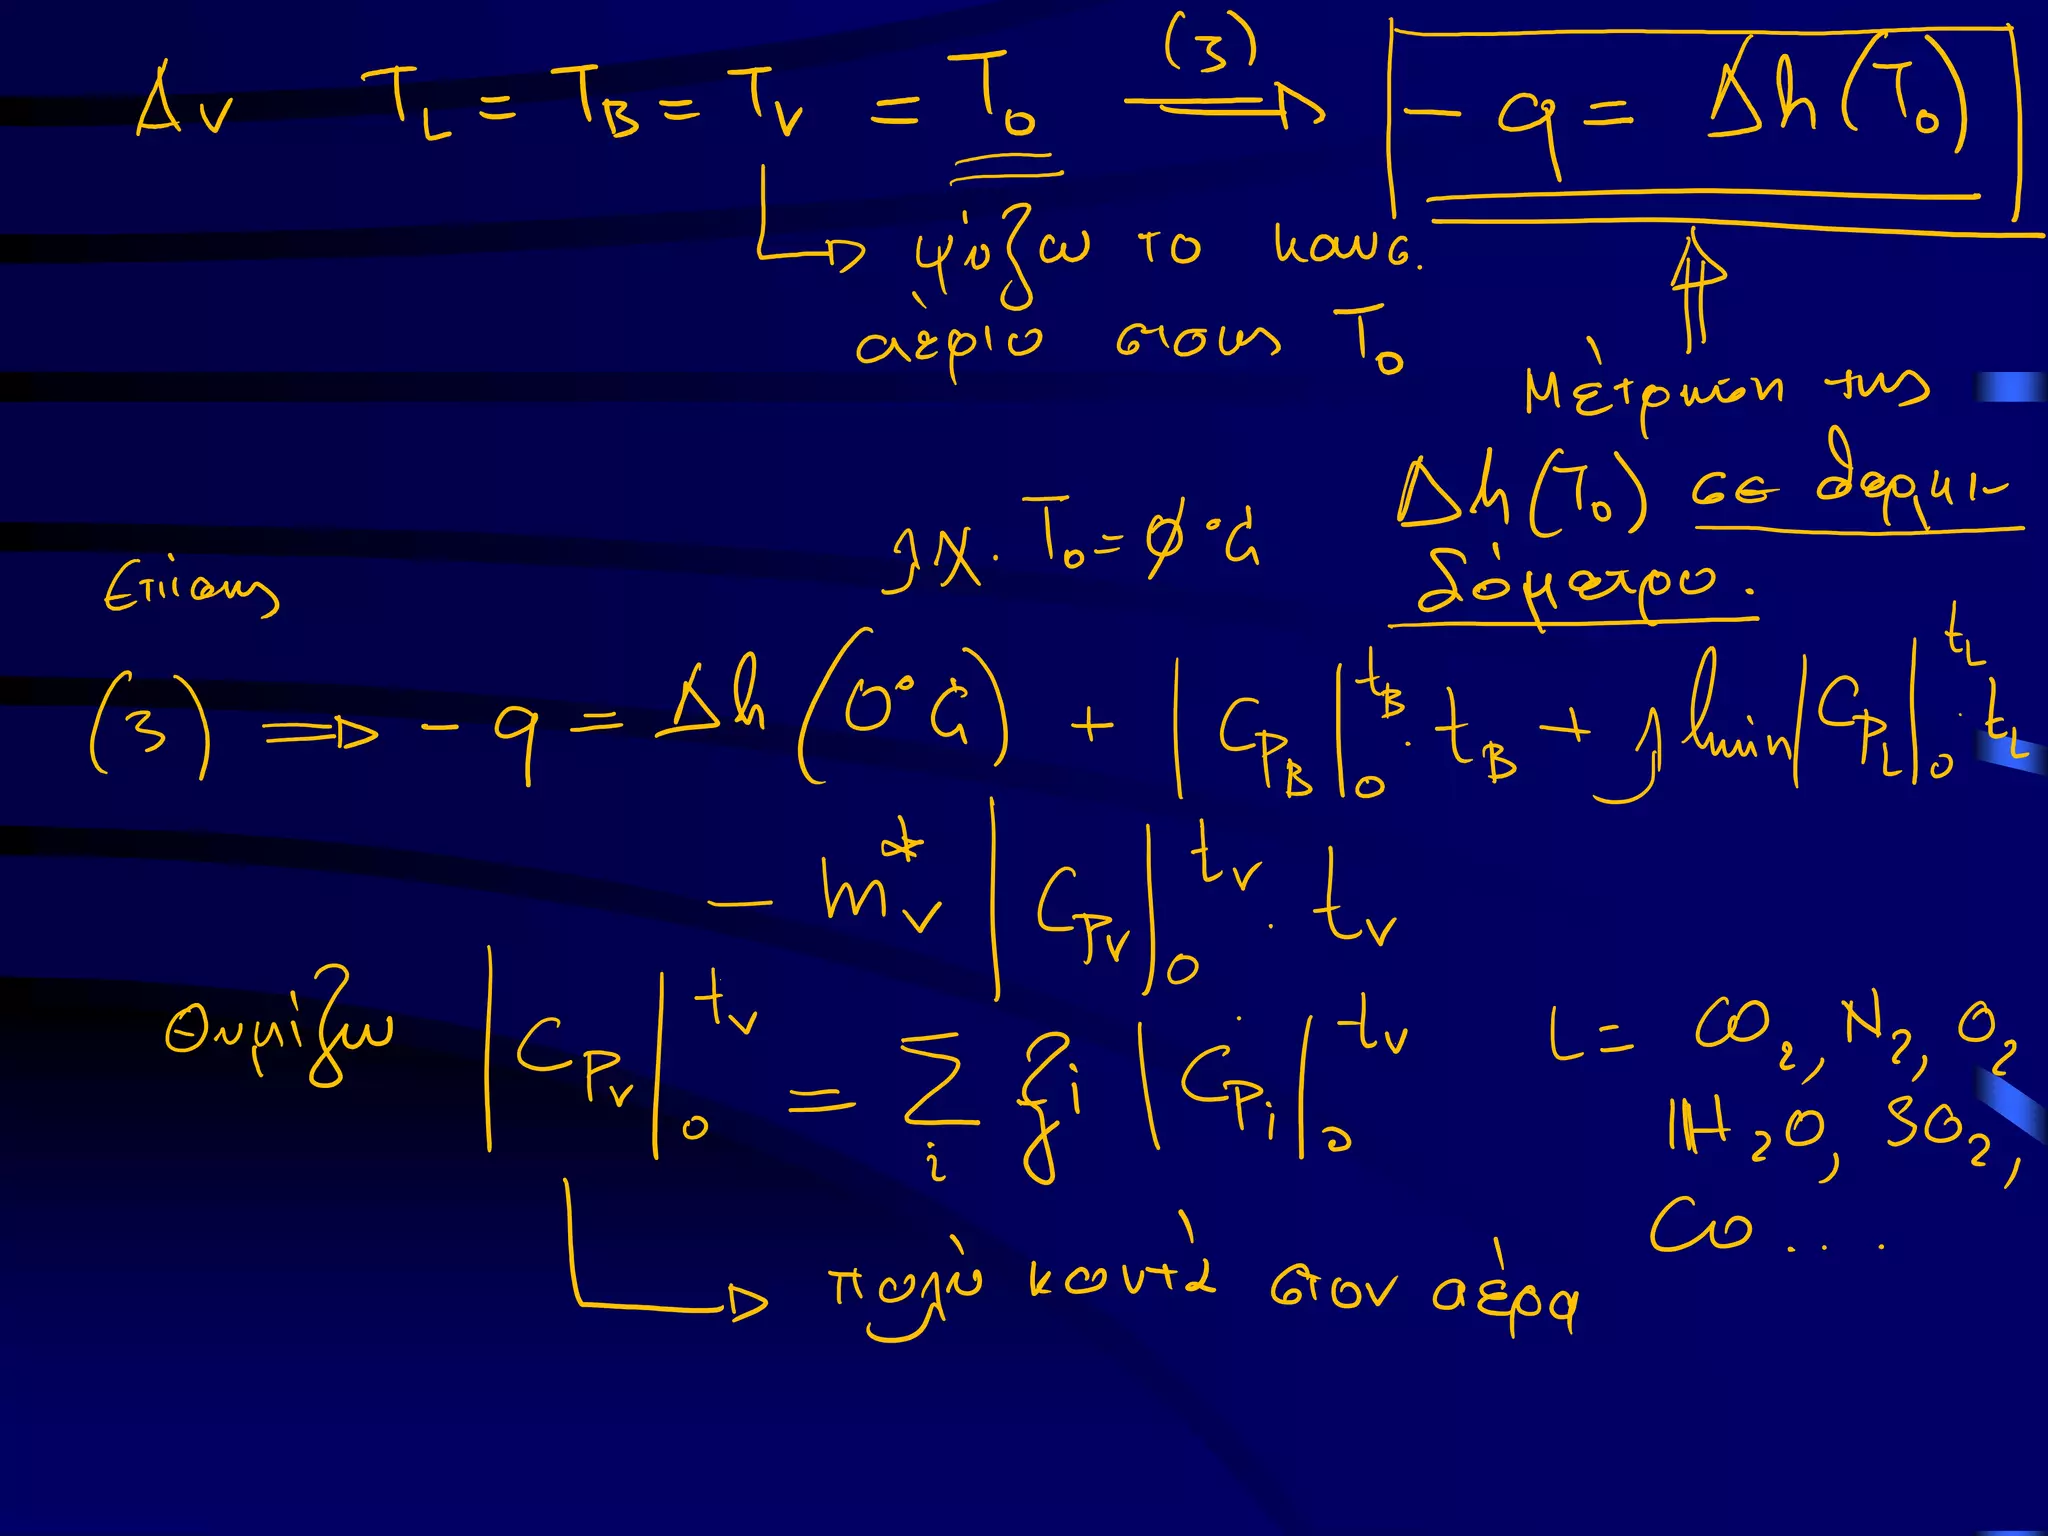 Αν T_L = T_B = T_V = T_0 (3) ⟹ -q = Δh(T_0)
↳ ψύζω το καυσ.
αέριο στους T_0
Μέτρηση της
Δh(T_0) σε θερμι-
δόμετρο.
λχ. T_0 = 0°C
Επίσης
(3) ⟹ -q = Δh(0°C) + |C_{P_B}|_0^{t_B} · t_B + λ l_{min} |C_{P_L}|_0^{t_L} · t_L
- m_V^* |C_{P_V}|_0^{t_V} · t_V
Θυμίζω |C_{P_V}|_0^{t_V} = Σ_i ξ_i |C_{P_i}|_0^{t_V}
ι = CO_2, N_2, O_2
H_2O, SO_2,
CO...
↳ πολύ κοντά στον αέρα